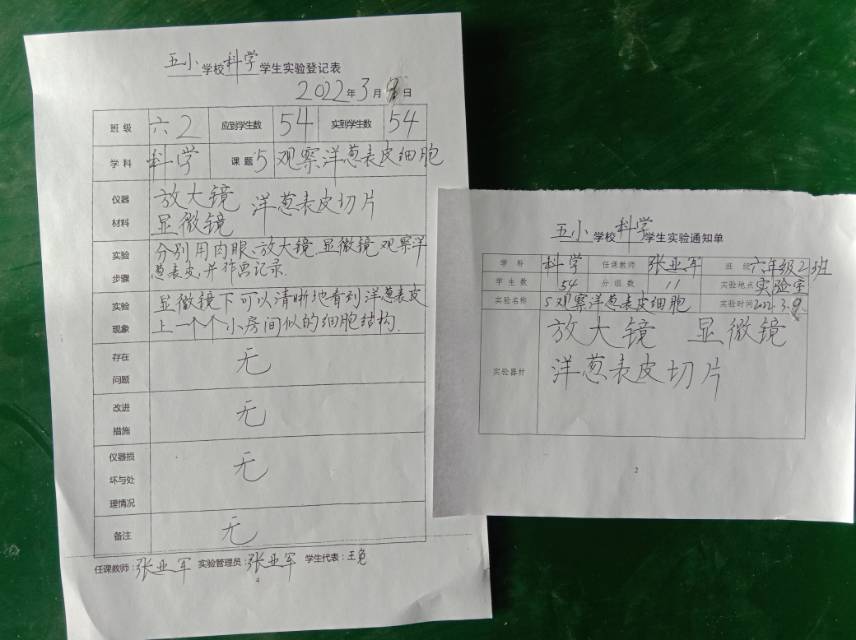 五小学校科学学生实验登记表
2022年3月9日
班级 六2 应到学生数 54 实到学生数 54
学科 科学 课题 5观察洋葱表皮细胞
仪器材料 放大镜 洋葱表皮切片
显微镜
实验步骤 分别用肉眼、放大镜、显微镜观察洋
葱表皮,并作画记录.
实验现象 显微镜下可以清晰地看到洋葱表皮
上一个个小房间似的细胞结构.
存在问题 无
改进措施 无
仪器损坏与处理情况 无
备注 无
任课教师:张亚军 实验管理员:张亚军 学生代表:王
五小学校科学学生实验通知单
学科 科学 任课教师 张亚军 班级 六年级2班
学生数 54 分组数 11 实验地点 实验室
实验名称 5观察洋葱表皮细胞 实验时间 2022.3.9
实验器材 放大镜 显微镜
洋葱表皮切片
2